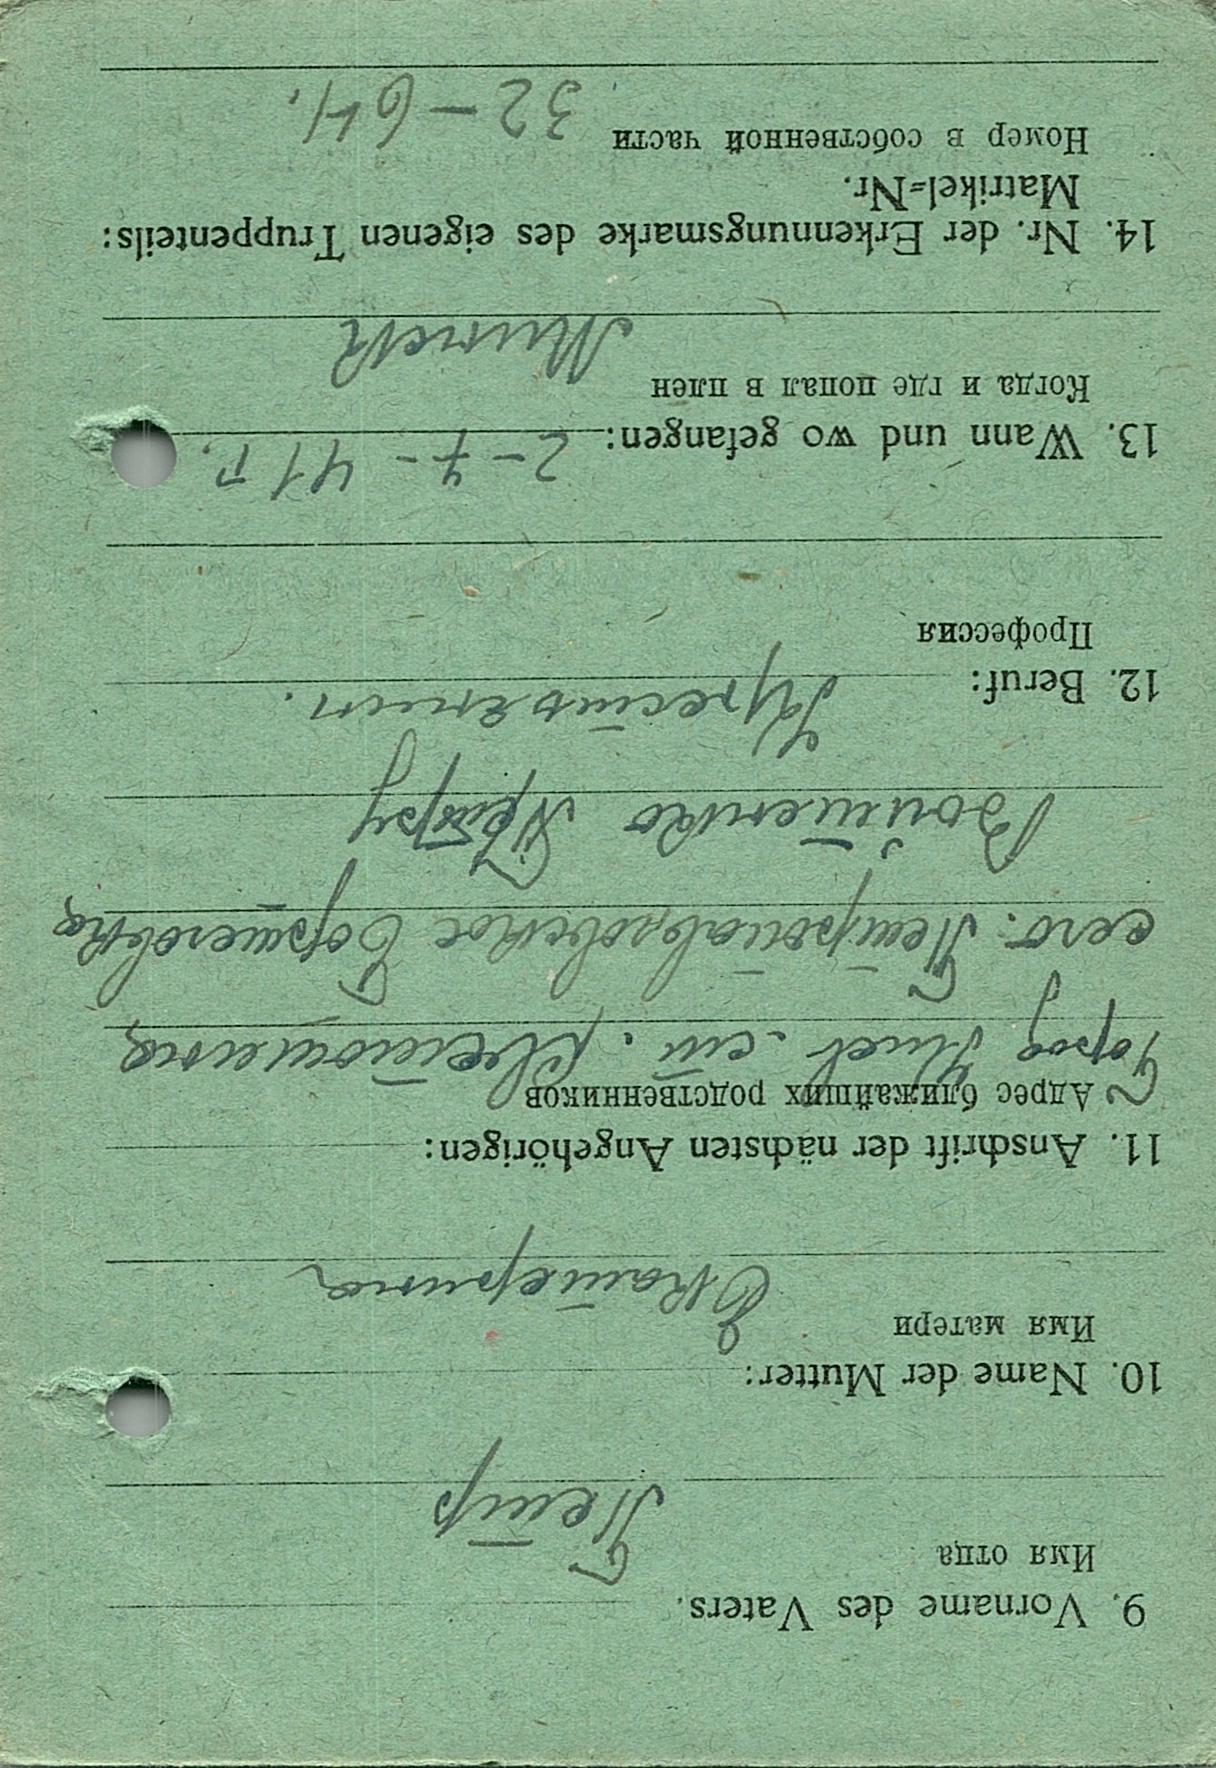 9. Vorname des Vaters.
Имя отца
Петр
10. Name der Mutter:
Имя матери
Екатерина
11. Anschrift der nächsten Angehörigen:
Адрес ближайших родственников
Город Киев. ст.
село. Петропавловское Борщеговка
Войтенко Петру
12. Beruf:
Профессия
Крестьянин.
13. Wann und wo gefangen: 2-7-41 г.
Когда и где попал в плен
Минск
14. Nr. der Erkennungsmarke des eigenen Truppenteils:
Matrikel=Nr.
Номер в собственной части
32-64.